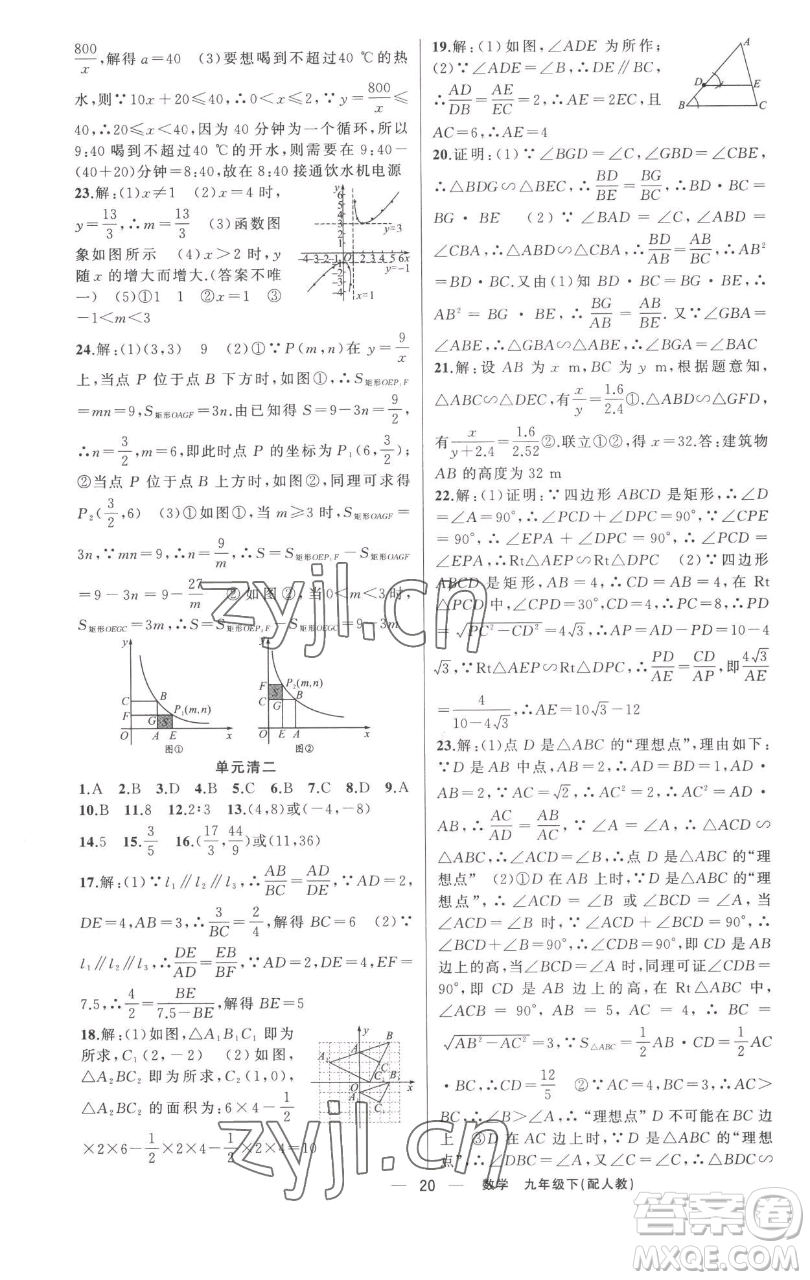 800/x,解得 a=40 (3)要想喝到不超过40 ℃的热
水,则∵10x+20≤40,∴0<x≤2,∵y=800/x≤
40,∴20≤x<40,因为 40 分钟为一个循环,所以
9:40 喝到不超过 40 ℃的开水,则需要在 9:40-
(40+20)分钟=8:40,故在 8:40 接通饮水机电源
23.解:(1)x≠1 (2)x=4 时,
y=13/3,∴m=13/3 (3)函数图
象如图所示 (4)x>2 时,y
随 x 的增大而增大.(答案不唯
一) (5)①1 1 ②x=1 ③
-1<m<3
y=3
y=-1
x=1
24.解:(1)(3,3) 9 (2)①∵P(m,n)在 y=9/x
上,当点 P 位于点 B 下方时,如图①,∴S矩形OEP₁F
=mn=9,S矩形OAGF=3n.由已知得 S=9-3n=9/2,
∴n=3/2,m=6,即此时点 P 的坐标为 P₁(6,3/2);
②当点 P 位于点 B 上方时,如图②,同理可求得
P₂(3/2,6) (3)①如图①,当 m≥3 时,S矩形OAGF=
3n,∵mn=9,∴n=9/m,∴S=S矩形OEP₁F-S矩形OAGF
=9-3n=9-27/m ②如图②,当 0<m<3 时,
S矩形OEGC=3m,∴S=S矩形OEP₂F-S矩形OEGC=9-3m
y C F O B G S P₁(m,n) A E x 图①
y F C O S P₂(m,n) G B E A x 图②
单元清二
1.A 2.B 3.D 4.B 5.C 6.B 7.C 8.D 9.A
10.B 11.8 12.2∶3 13.(4,8)或(-4,-8)
14.5 15.3/5 16.(17/3,44/9)或(11,36)
17.解:(1)∵l₁∥l₂∥l₃,∴AB/BC=AD/DE,∵AD=2,
DE=4,AB=3,∴3/BC=2/4,解得 BC=6 (2)∵
l₁∥l₂∥l₃,∴DE/AD=EB/BF,∵AD=2,DE=4,EF=
7.5,∴4/2=BE/(7.5-BE),解得 BE=5
18.解:(1)如图,△A₁B₁C₁ 即为
所求,C₁(2,-2) (2)如图,
△A₂BC₂ 即为所求,C₂(1,0),
△A₂BC₂ 的面积为:6×4-1/2
×2×6-1/2×2×4-1/2×2×4=10
19.解:(1)如图,∠ADE 为所作;
(2)∵∠ADE=∠B,∴DE∥BC,
∴AD/DB=AE/EC=2,∴AE=2EC,且
AC=6,∴AE=4
A D E B C
20.证明:(1)∵∠BGD=∠C,∠GBD=∠CBE,
∴△BDG∽△BEC,∴BD/BE=BG/BC,∴BD·BC=
BG·BE (2)∵∠BAD=∠C,∠ABD=
∠CBA,∴△ABD∽△CBA,∴BD/AB=AB/BC,∴AB²
=BD·BC.又由(1)知 BD·BC=BG·BE,∴
AB²=BG·BE,∴BG/AB=AB/BE.又∵∠GBA=
∠ABE,∴△GBA∽△ABE,∴∠BGA=∠BAC
21.解:设 AB 为 x m,BC 为 y m,根据题意知,
△ABC∽△DEC,有x/y=1.6/2.4①.△ABG∽△GFD,
有x/(y+2.4)=1.6/2.52②.联立①②,得 x=32.答:建筑物
AB 的高度为 32 m
22.解:(1)证明:∵四边形 ABCD 是矩形,∴∠D
=∠A=90°,∴∠PCD+∠DPC=90°,∵∠CPE
=90°,∴∠DPC+∠EPA=90°,∴∠PCD=
∠EPA,∴Rt△AEP∽Rt△DPC (2)∵四边形
ABCD 是矩形,AB=4,∴CD=AB=4,在 Rt
△PCD 中,∠CPD=30°,CD=4,∴PC=8,∴PD
=√(PC²-CD²)=4√3,∴AP=AD-PD=10-4
√3,∵Rt△AEP∽Rt△DPC,∴PD/AE=CD/AP,即4√3/AE
=4/(10-4√3),∴AE=10√3-12
23.解:(1)点 D 是△ABC 的“理想点”,理由如下:
∵D 是 AB 中点,AB=2,∴AD=1,AD·AB=
2,∵AC=√2,∴AC²=2,∴AC²=AD·
AB,∴AC/AD=AB/AC,∵∠A=∠A,∴△ACD∽
△ABC,∴∠ACD=∠B,∴点 D 是△ABC 的“理
想点” (2)①D 在 AB 上时,∵D 是△ABC 的
“理想点”,∴∠ACD=∠B 或∠BCD=∠A,当
∠ACD=∠B 时,∵∠ACD+∠BCD=90°,∴
∠BCD+∠B=90°,∴∠CDB=90°,即 CD 是 AB
边上的高,当∠BCD=∠A 时,同理可证∠CDB=
90°,即 CD 是 AB 边上的高,在 Rt△ABC 中,
∠ACB=90°,AB=5,AC=4,∴BC=
√(AB²-AC²)=3,∵S△ABC=1/2AB·CD=1/2AC
·BC,∴CD=12/5 ②∵AC=4,BC=3,∴AC>
BC,∴∠B>∠A,∴“理想点”D 不可能在 BC 边
上 ③D 在 AC 边上时,∵D 是△ABC 的“理想
点”,∴∠DBC=∠A,又∠C=∠C,∴△BDC∽
20 数学 九年级下(配人教)
zyjl.cn
zyjl.cn
答案圈
MXQE.COM